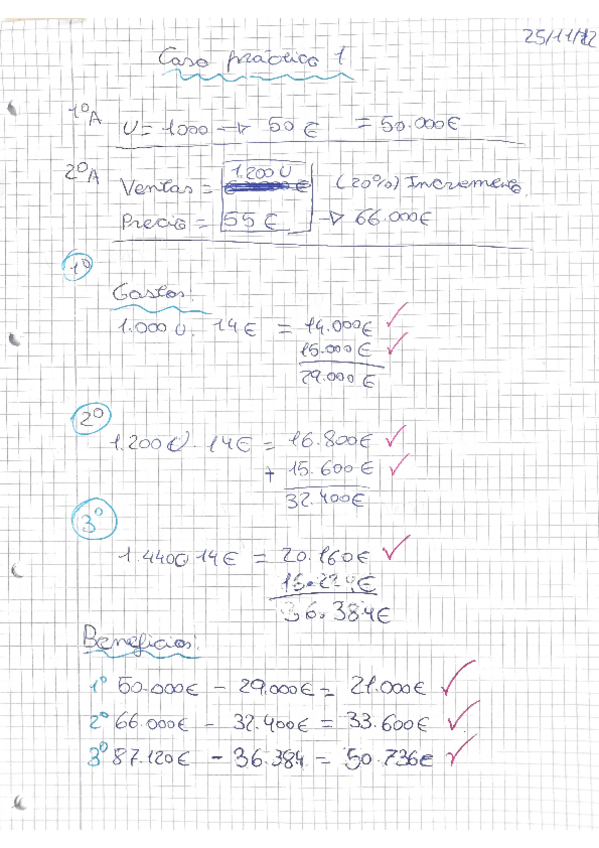 25/11/22
Caso práctico 1
1ºA U = 1000 → 50 € = 50.000€
2ºA Ventas = 1.200 U (20%) Incremento
Precio = 55 € → 66.000€
1º
Gastos:
1.000 U. 14€ = 14.000€ ✓
15.000€ ✓
29.000€
2º
1.200U. 14€ = 16.800€ ✓
+ 15.600€ ✓
32.400€
3º
1.440U 14€ = 20.160€ ✓
36.384€
Beneficios:
1º 50.000€ - 29.000€ = 21.000€ ✓
2º 66.000€ - 32.400€ = 33.600€ ✓
3º 87.120€ - 36.384 = 50.736€ ✓